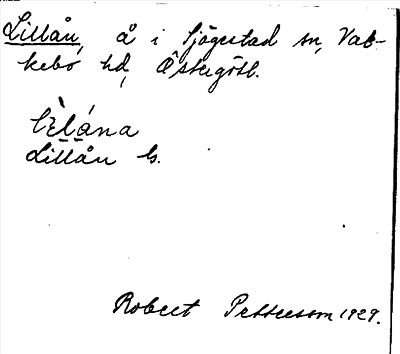 Lillån, å i Sjögestad sn, Val-
kebo hd, Östergötl.
lèlána
Lillån b.
Robert Pettersson 1929.